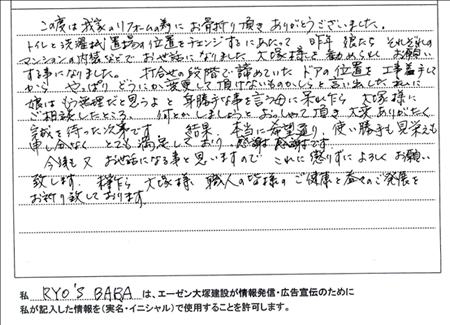 この度は我家のリフォームの為に お骨折り頂き ありがとうございました。
トイレと洗濯機置場の位置をチェンジするにあたって 昨年 娘たち それぞれの
マンションの内装などで お世話になりました 大塚様を 勧められ お願い
する事になりました。 打合せの段階で諦めていた ドアの位置を 工事着手して
から やっぱり どうにか変更して頂けないものかしらと言い出した 私に
娘は もう無理だと思うよ と 身勝手な事を言う母に呆れ乍ら 大塚様に
ご相談したところ、 何とかしましょうと おっしゃって頂き 大変ありがたく
完成を待った次第です 結果、本当に希望通り、使い勝手も見栄えも
申し分なく とても満足しており 感謝 感謝です。
今後も又 お世話になる事と思いますので これに懲りずに よろしくお願い
致します。 末筆乍ら 大塚様 職人の皆様の ご健康と益々のご発展を
お祈り致しております。
私 RYO'S BABA は、エーゼン大塚建設が情報発信・広告宣伝のために
私が記入した情報を(実名・イニシャル)で使用することを許可します。